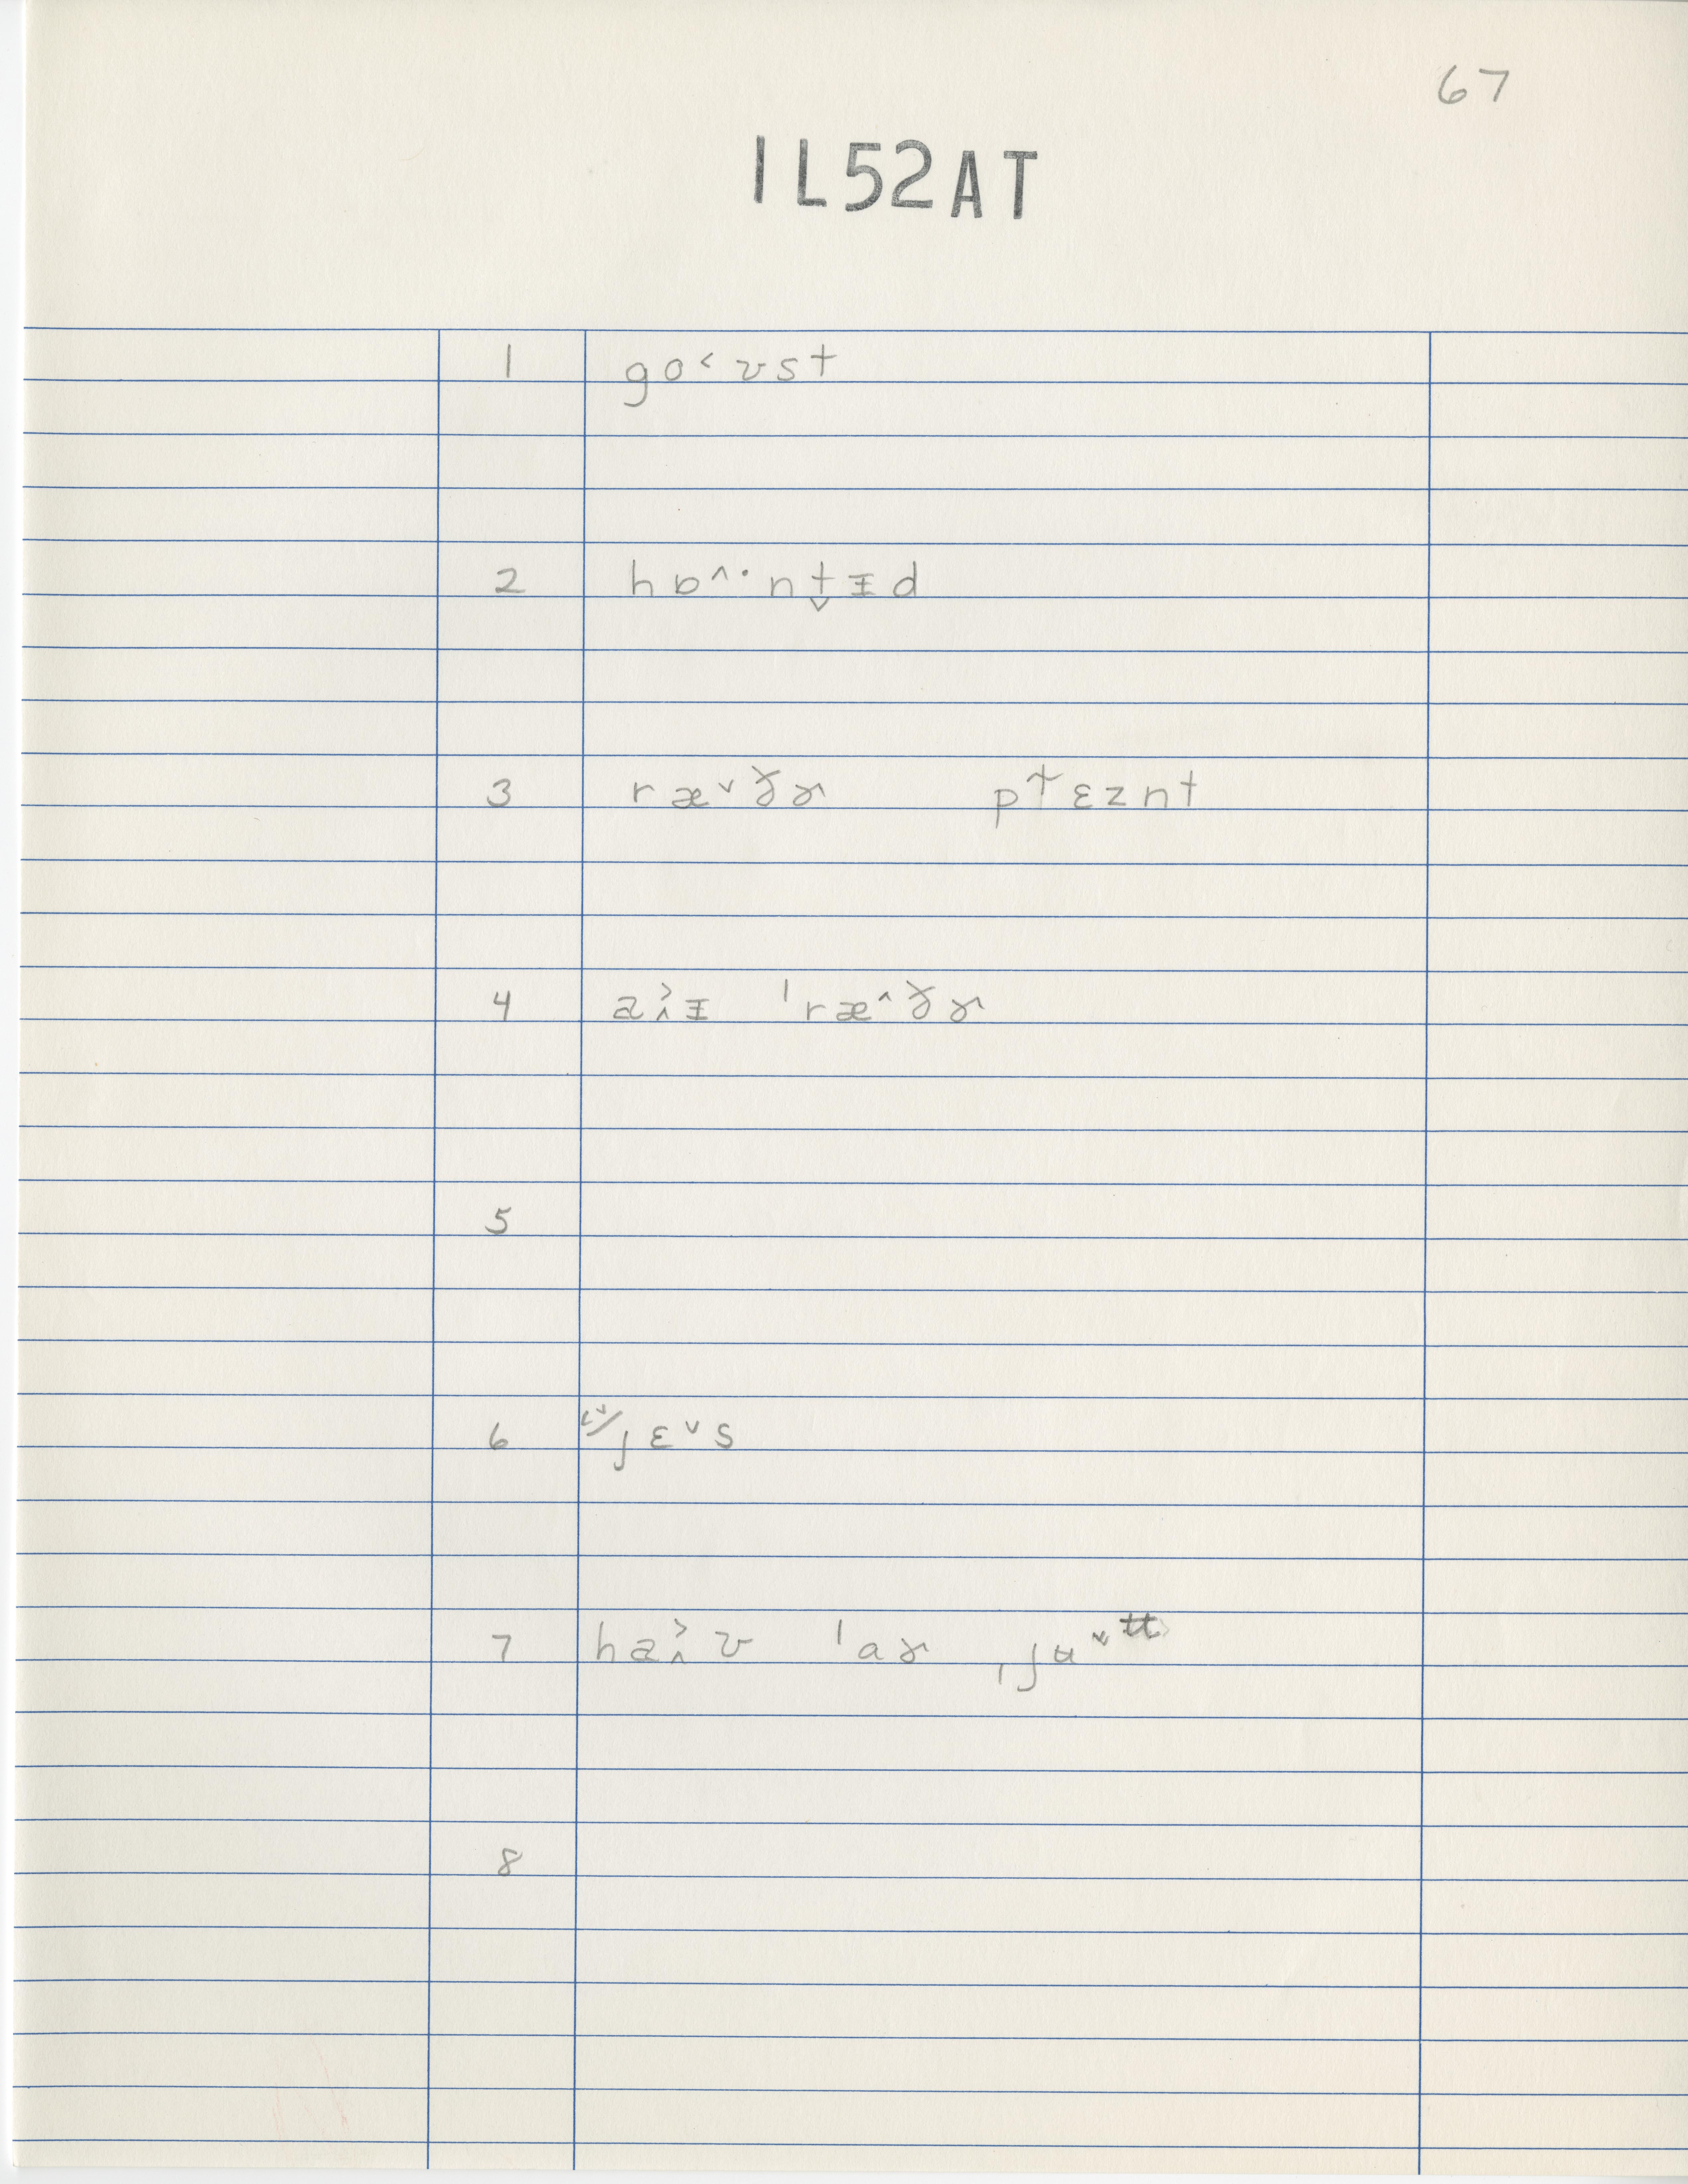 67
1L52AT
1 go˂ʊst
2 hɒ˄·nt̬ɪd
3 ræ˅ðɚ pɼ̃ɛznt
4 aɪ ˈræ˄ðɚ
5
6 jɛ˅s
7 haʊ ˈaɚ ˌjʉ
8